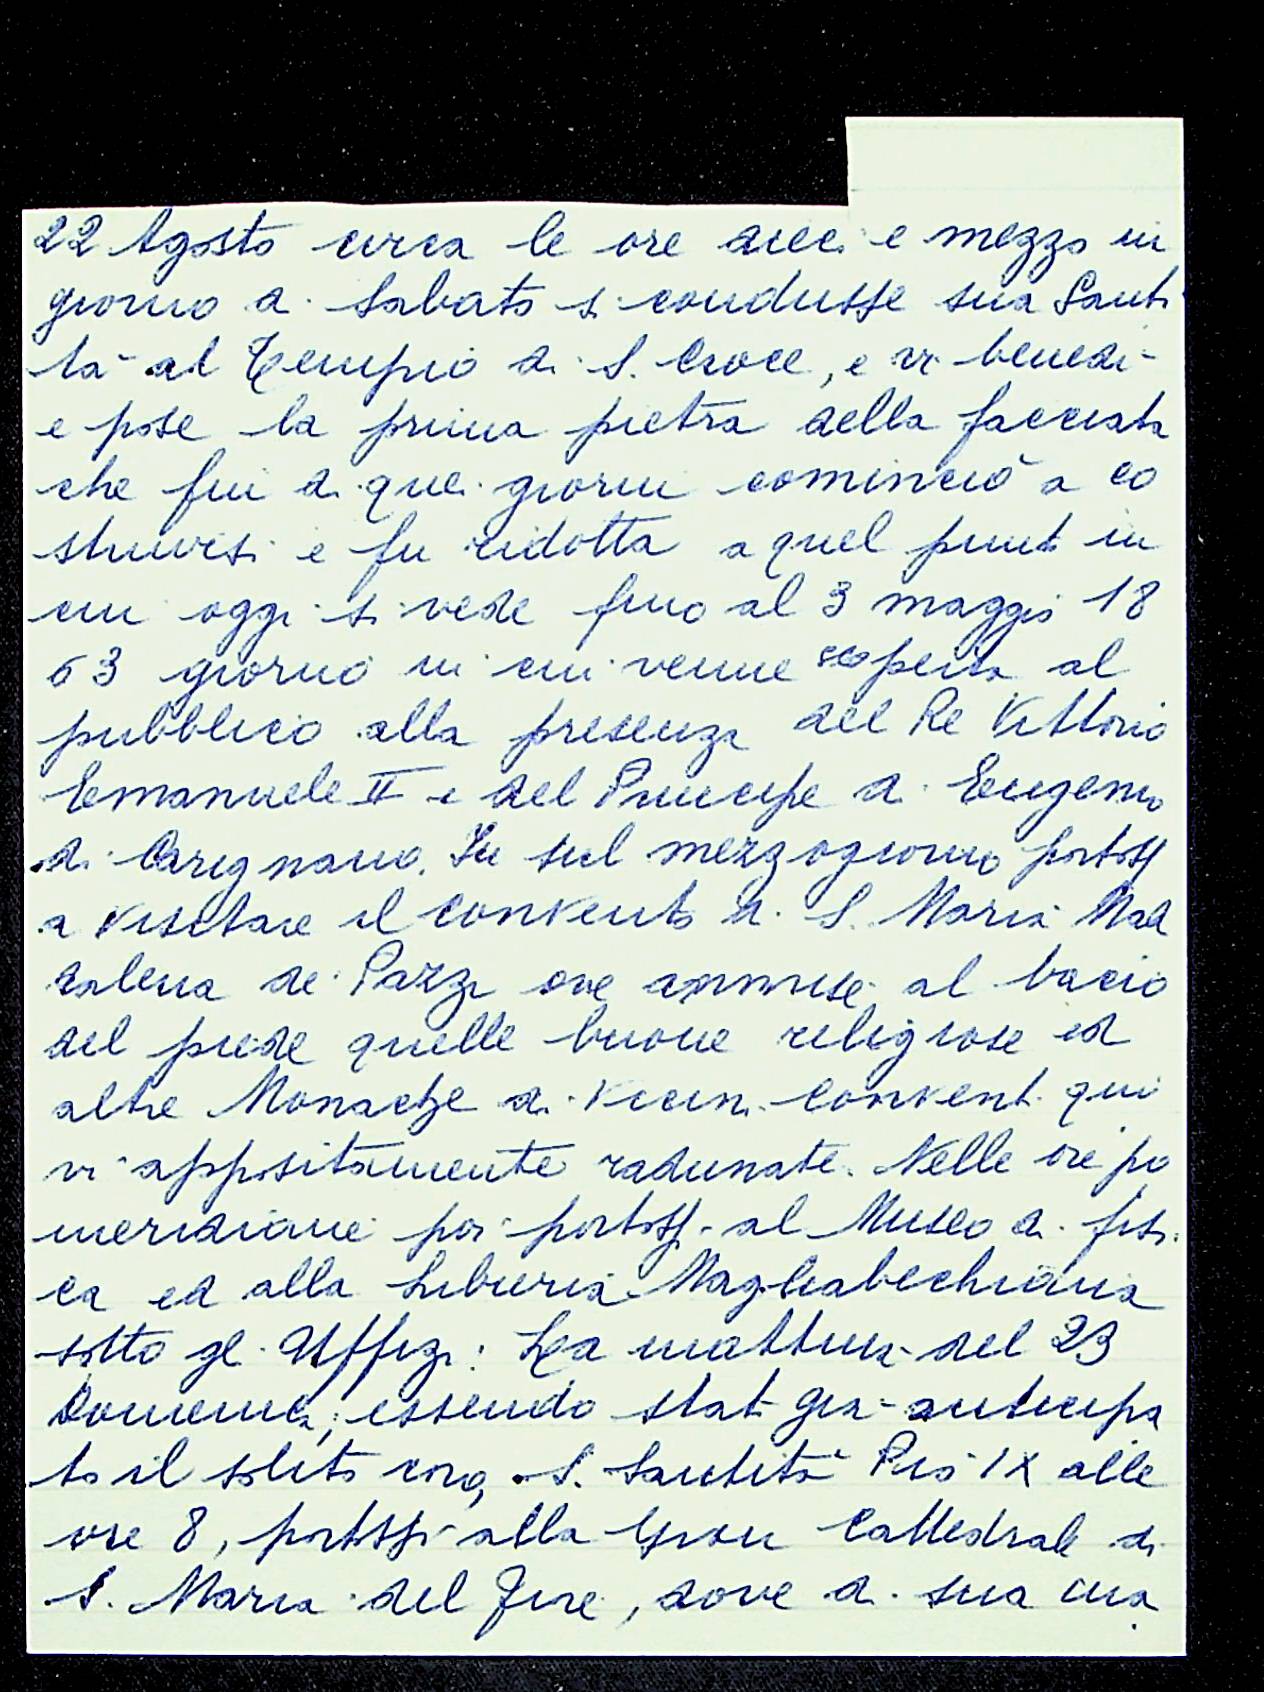 22 Agosto circa le ore dieci e mezzo in
giorno di Sabato si condusse sua Santi
tà al Tempio di S. Croce, e vi benedì
e pose la prima pietra della facciata
che fin di quei giorni cominciò a co
struirsi e fu ridotta a quel punto in
cui oggi si vede fino al 3 maggio 18
63 giorno in cui venne scoperta al
pubblico alla presenza del Re Vittorio
Emanuele II e del Principe di Eugenio
di Carignano. Fu sul mezzogiorno portossi
a visitare il convento di S. Maria Mad
dalena de Pazzi ove ammise al bacio
del piede quelle buone religiose ed
altre Monache di vicini conventi qui
vi appositamente radunate. Nelle ore po
meridiane poi portossi al Museo di fisi
ca ed alla Libreria Magliabechiana
sotto gli Uffizi: La mattina del 23
Domenica, essendo stato già anticipa
to il solito coro, S. Santità Pio IX alle
ore 8, portossi alla Gran Cattedrale di
S. Maria del Fiore, dove di sua ma